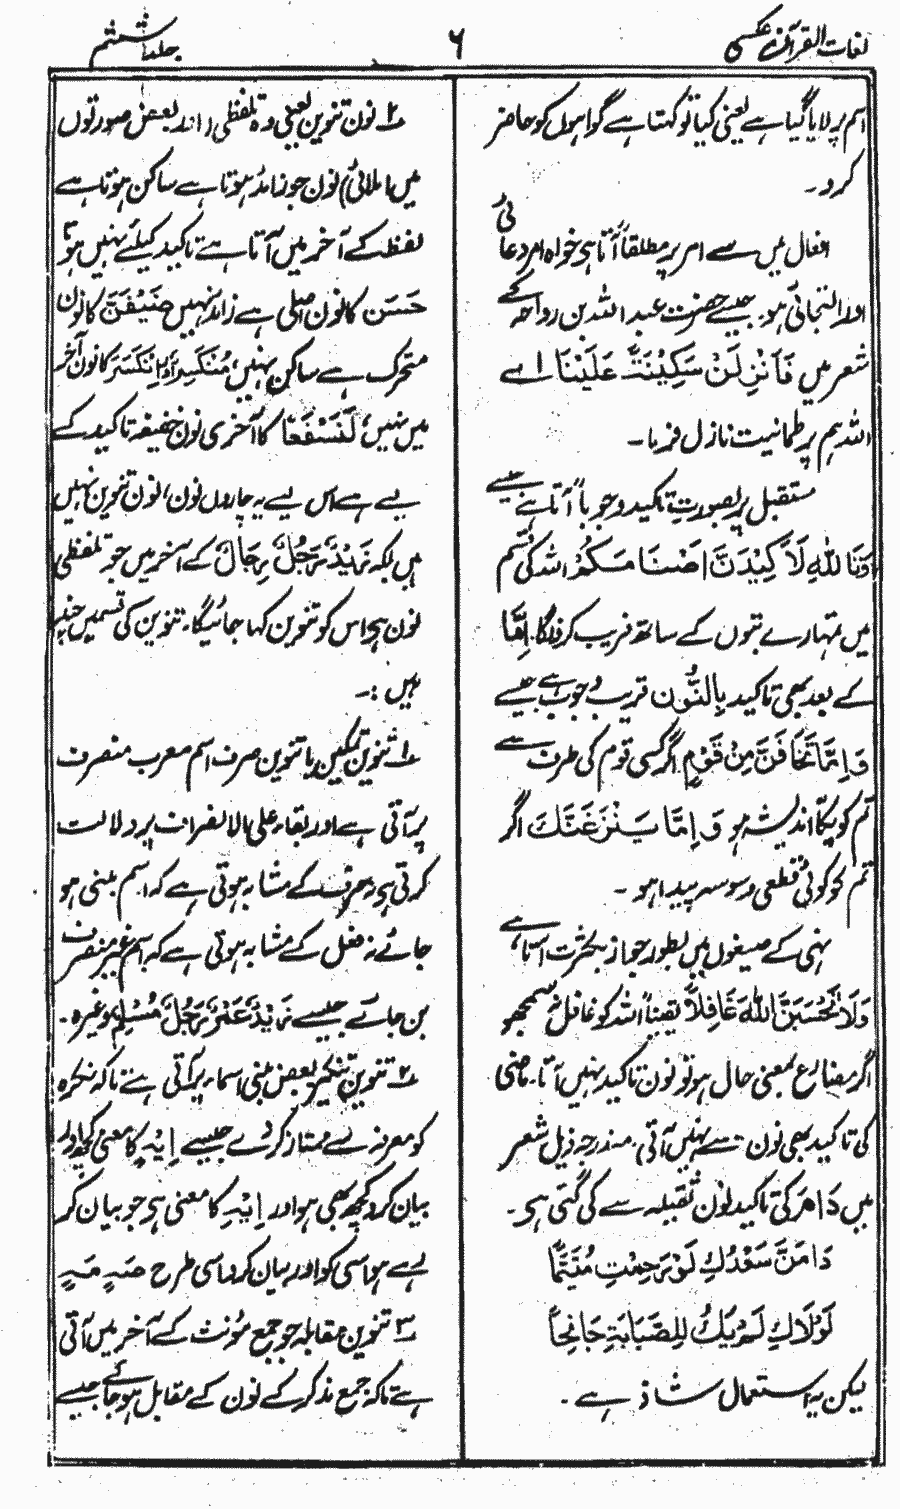 لغات القرآن عکسی
۶
جلد ششم
اسم پر لایا گیا ہے یعنی کیا تو کہتا ہے گواہوں کو حاضر
کرد۔
افعال میں سے امر پر مطلقاً آتا ہی خواہ امر دعائی
اور التجائی ہو۔ جیسے حضرت عبد اللہ بن رواحہ کے
شعر میں فَاَنْزِلَنْ سَكِيْنَةً عَلَيْنَا اے
اللہ ہم پر طمانیت نازل فرما۔
مستقبل پر بصورتِ تاکید وجوباً آتا ہے جیسے
وَتَا للّٰهِ لَاَكِيْدَنَّ اَصْنَامَكُمْ اللہ کی قسم
میں تمہارے بتوں کے ساتھ فریب کروں گا۔ اِمَّا
کے بعد بھی تاکید بِالنُّون قریب وجوب ہے جیسے
وَاِمَّا تَخَافَنَّ مِنْ قَوْمٍ اگر کسی قوم کی طرف سے
تم کو پکّا اندیشہ ہو وَ اِمَّا يَنْزَغَنَّكَ اگر
تم کو کوئی قطعی وسوسہ پیدا ہو۔
نہی کے صیغوں میں بطور جواز بکثرت آتا ہے
وَلَا تَحْسَبَنَّ اللّٰهَ غَافِلًا یقیناً اللہ کو غافل نہ سمجھو
اگر مضارع بمعنی حال ہو تو نون تاکید نہیں آتا۔ ماضی
کی تاکید بھی نون سے نہیں آتی۔ مندرجہ ذیل شعر
میں دَامَ کی تاکید نون ثقیلہ سے کی گئی ہی۔
دَامَنَّ سَعْدُكِ لَوْ رَحِمْتِ مُتَيَّمًا
لَوْلَاكِ لَمْ يَكُ لِلصَّبَابَةِ جَانِحًا
لیکن یہ استعمال شاذ ہے۔
۲ نون تنوین یعنی وہ تلفظی زائد بعض صورتوں
میں املائی) نون جو زائد ہوتا ہے ساکن ہوتا ہے
لفظ کے آخر میں آتا ہے تاکید کیلئے نہیں ہوتا
حَسَن کا نون اصلی ہے زائد نہیں ضَيْفَنٌ کا نون
متحرک ہے ساکن نہیں، مُنْكَسِر اور اِنْكَسَرَ کا نون آخر
میں نہیں، لَنَسْفَعًا کا آخری نون خفیفہ تاکید کے
لیے ہے اس لیے یہ چاروں نون، نون تنوین نہیں
ہیں بلکہ زَيْدٌ، رَجُلٌ، رِجَالٌ کے آخر میں جو تلفظی
نون ہی اس کو تنوین کہا جائیگا۔ تنوین کی قسمیں چند
ہیں:۔
۱ تنوین تمکین یا تنوین صرف اسم معرب منصرف
پر آتی ہے اور بقاء علی الانصراف پر دلالت
کرتی ہی نہ حرف کے مشابہ ہوتی ہے کہ اسم مبنی ہو
جائے نہ فعل کے مشابہ ہوتی ہے کہ اسم غیر منصرف
بن جائے جیسے زَيْدٌ، عَمْرٌ، رَجُلٌ، مُسْلِمٌ وغیرہ۔
۲ تنوین تنکیر بعض مبنی اسماء پر آتی ہے تاکہ نکرہ
کو معرفہ سے ممتاز کر دے جیسے اِيْهٍ کا معنی کچھ اور
بیان کرو کچھ بھی ہو اور اِيْهِ کا معنی ہی جو بیان کر
رہے ہو اسی کو اور بیان کرو اسی طرح صَهٍ مَهٍ
۳ تنوین مقابلہ جو جمع مؤنث کے آخر میں آتی
ہے تاکہ جمع مذکر کے نون کے مقابل ہو جائے جیسے